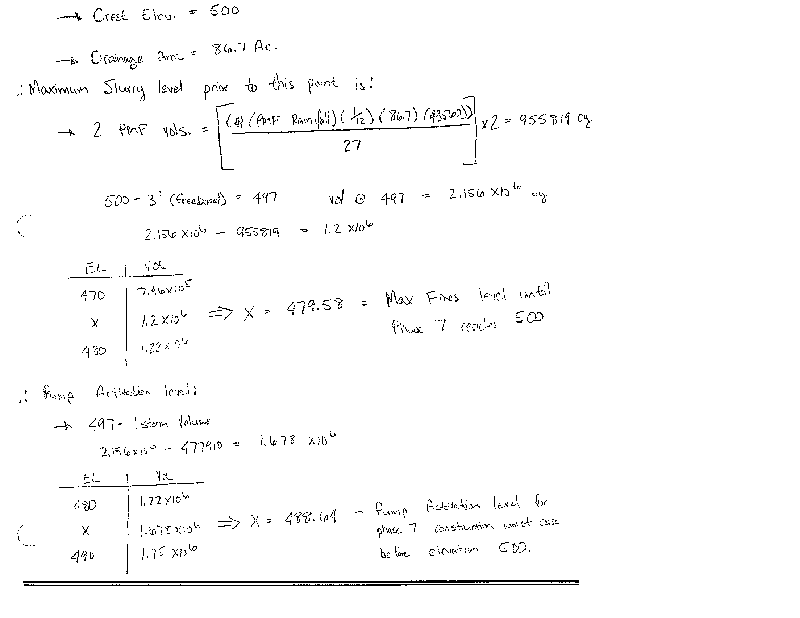 → Crest Elev. = 500
→ Drainage Area = 86.7 Ac.
∴ Maximum Slurry level prior to this point is:
→ 2 PMF vols. = [((PMF Rainfall)(1/12)(86.7)(43560)) / 27] x2 = 955819 cy
500 - 3' (freeboard) = 497 vol @ 497 = 2.156 x10⁶ cy
2.156 x10⁶ - 955819 = 1.2 x10⁶
EL Vol
470 7.46x10⁵
X 1.2x10⁶ ⇒ X = 479.58 = Max Fines level until
480 1.22x10⁶ Phase 7 reaches 500
∴ Pump Activation level:
→ 497 - 1 storm Volume
2.156x10⁶ - 477910 = 1.678 x10⁶
EL Vol
480 1.22x10⁶
X 1.678x10⁶ ⇒ X = - Pump Activation level for
490 1.75x10⁶ phase 7 construction worst case
before elevation 500.